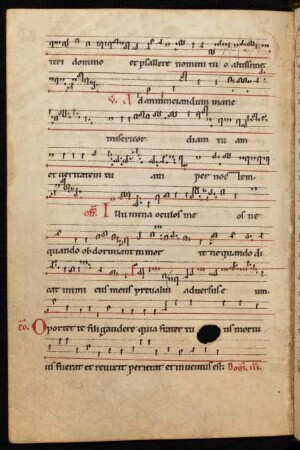 teri domino et psallere nomini tuo altissime
℣. Ad annunciandum mane
misericor diam tu am
et veritatem tu am per noc tem
Off. Illumina oculos me os ne
quando obdormiam in mor te ne quando di
cat inimi cus meus prevalui adversus e um
co. Oportet te fili gaudere quia frater tu us mortu
us fuerat et revixit perierat et inventus est. Dom. iii.